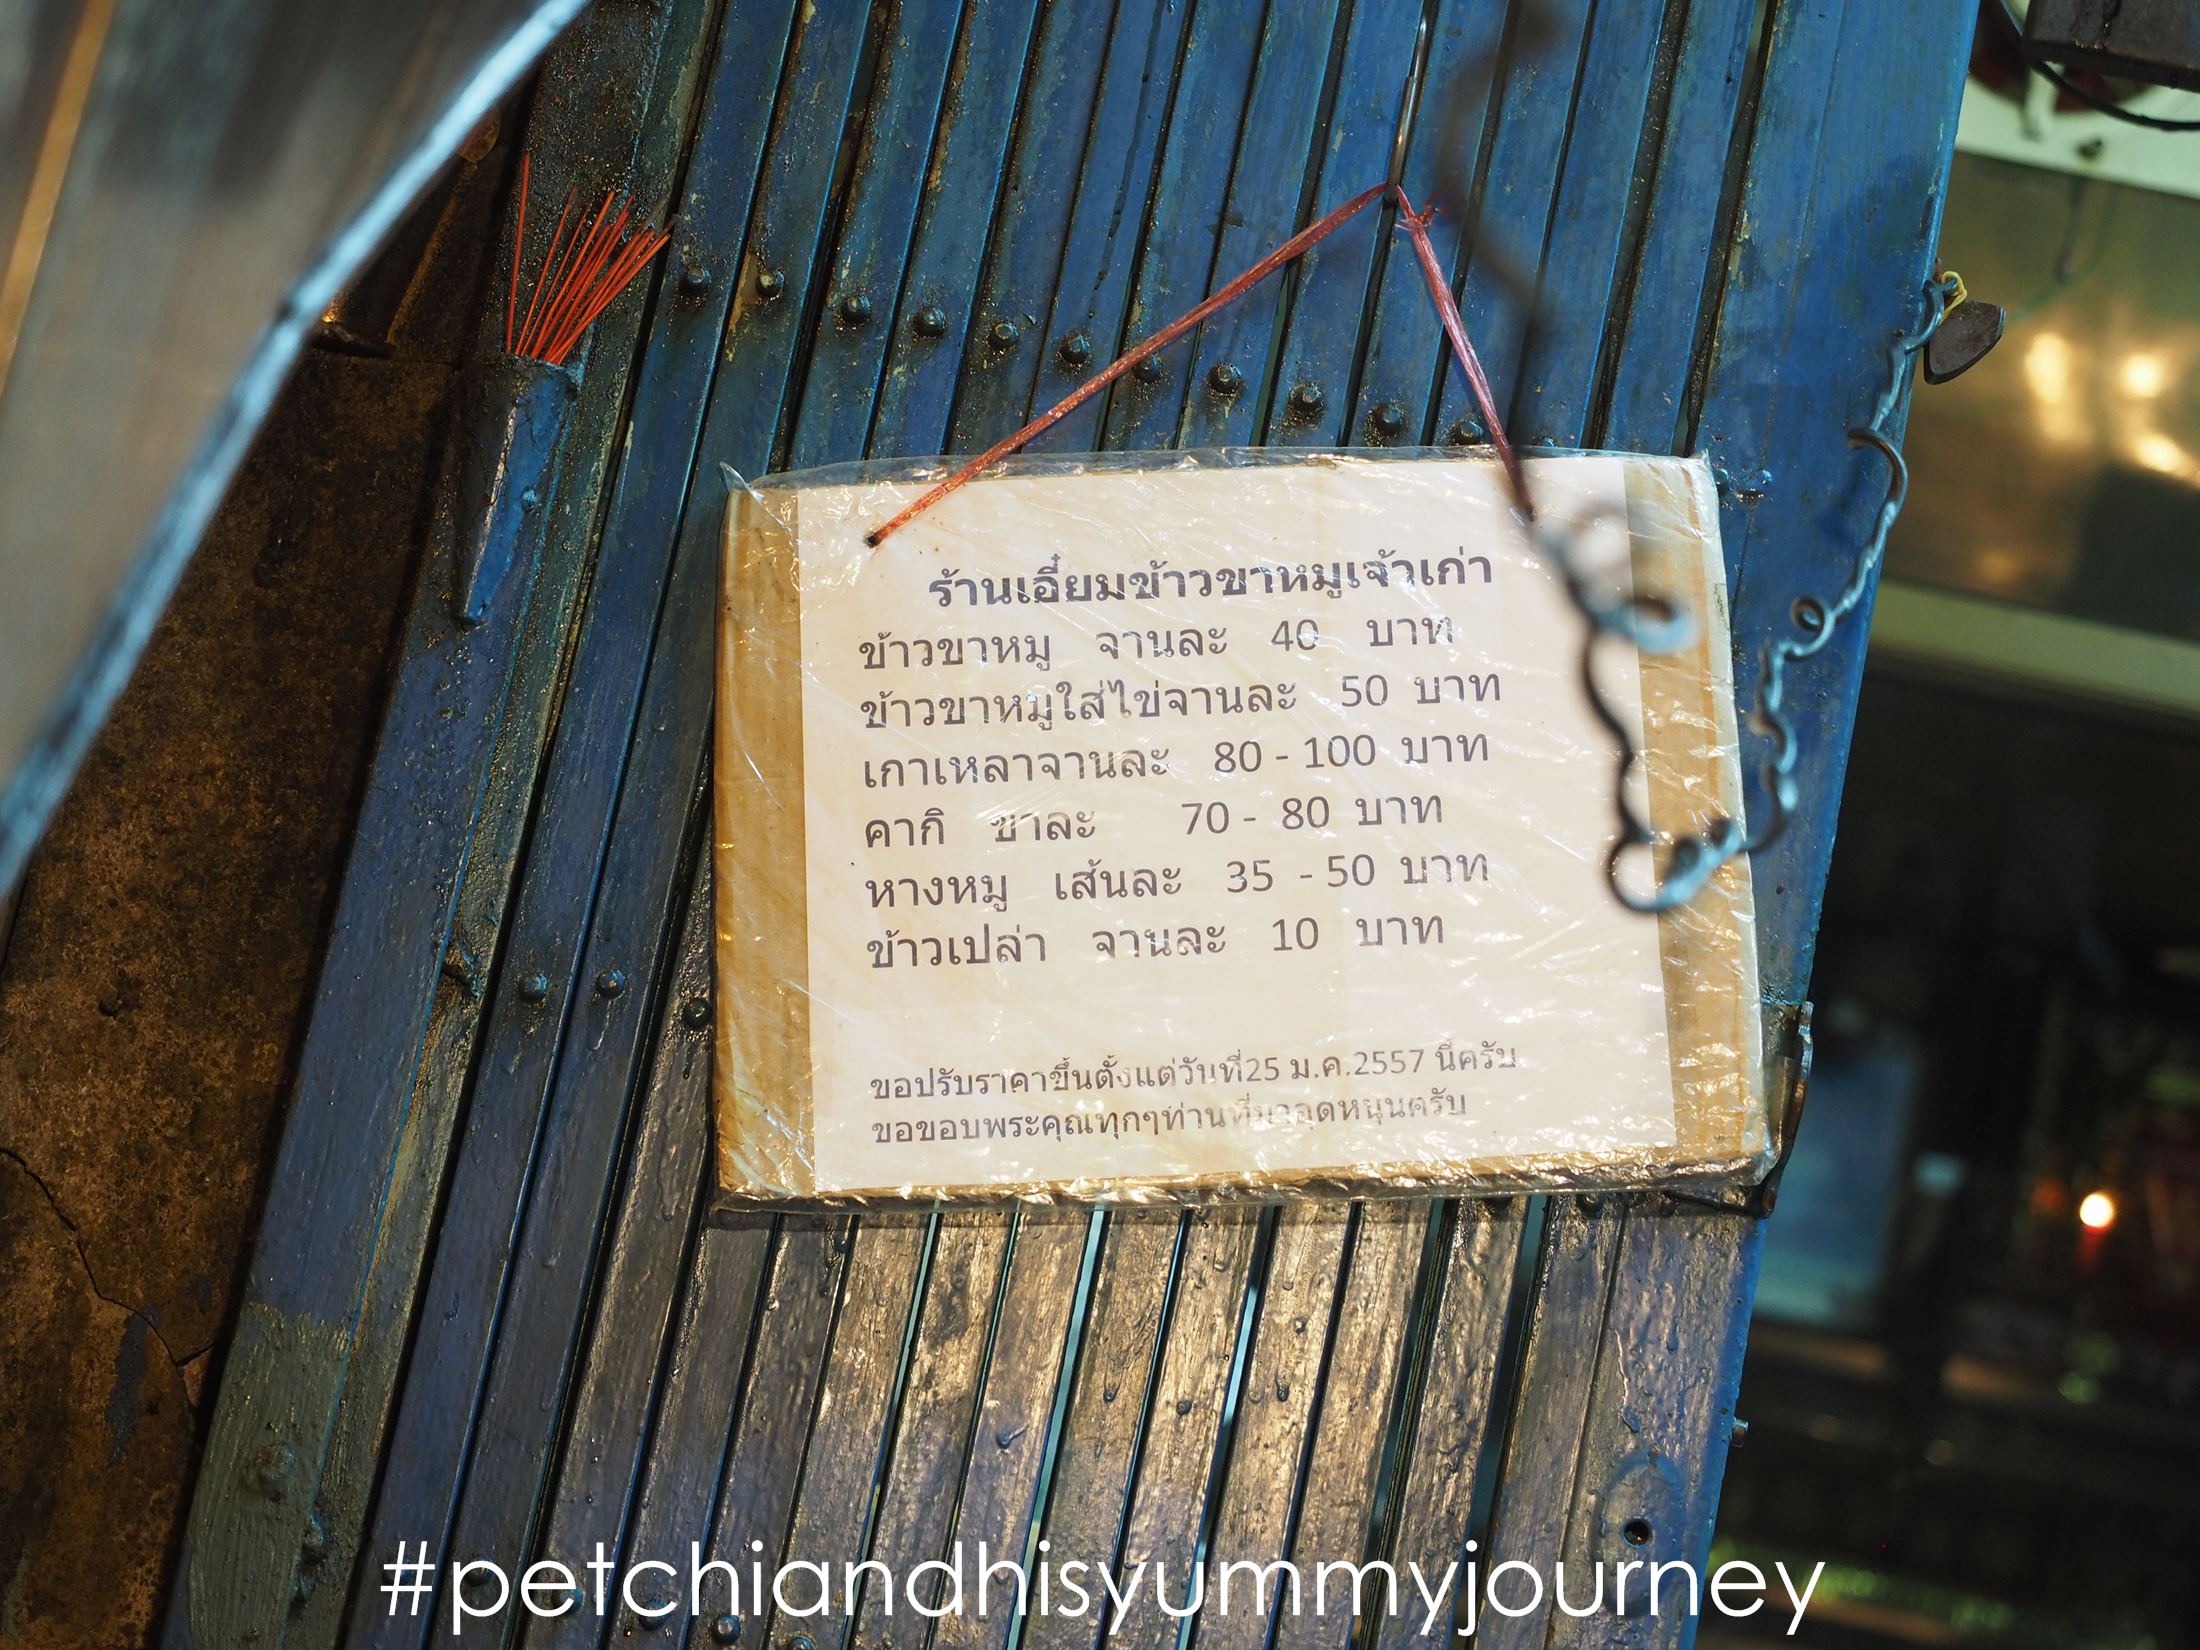 ร้านเอี๋ยมข้าวขาหมูเจ้าเก่า
ข้าวขาหมู จานละ 40 บาท
ข้าวขาหมูใส่ไข่จานละ 50 บาท
เกาเหลาจานละ 80 - 100 บาท
คากิ ขาละ 70 - 80 บาท
หางหมู เส้นละ 35 - 50 บาท
ข้าวเปล่า จานละ 10 บาท
ขอปรับราคาขึ้นตั้งแต่วันที่25 ม.ค.2557 นี้ครับ
ขอขอบพระคุณทุกๆท่านที่มาอุดหนุนครับ
#petchiandhisyummyjourney